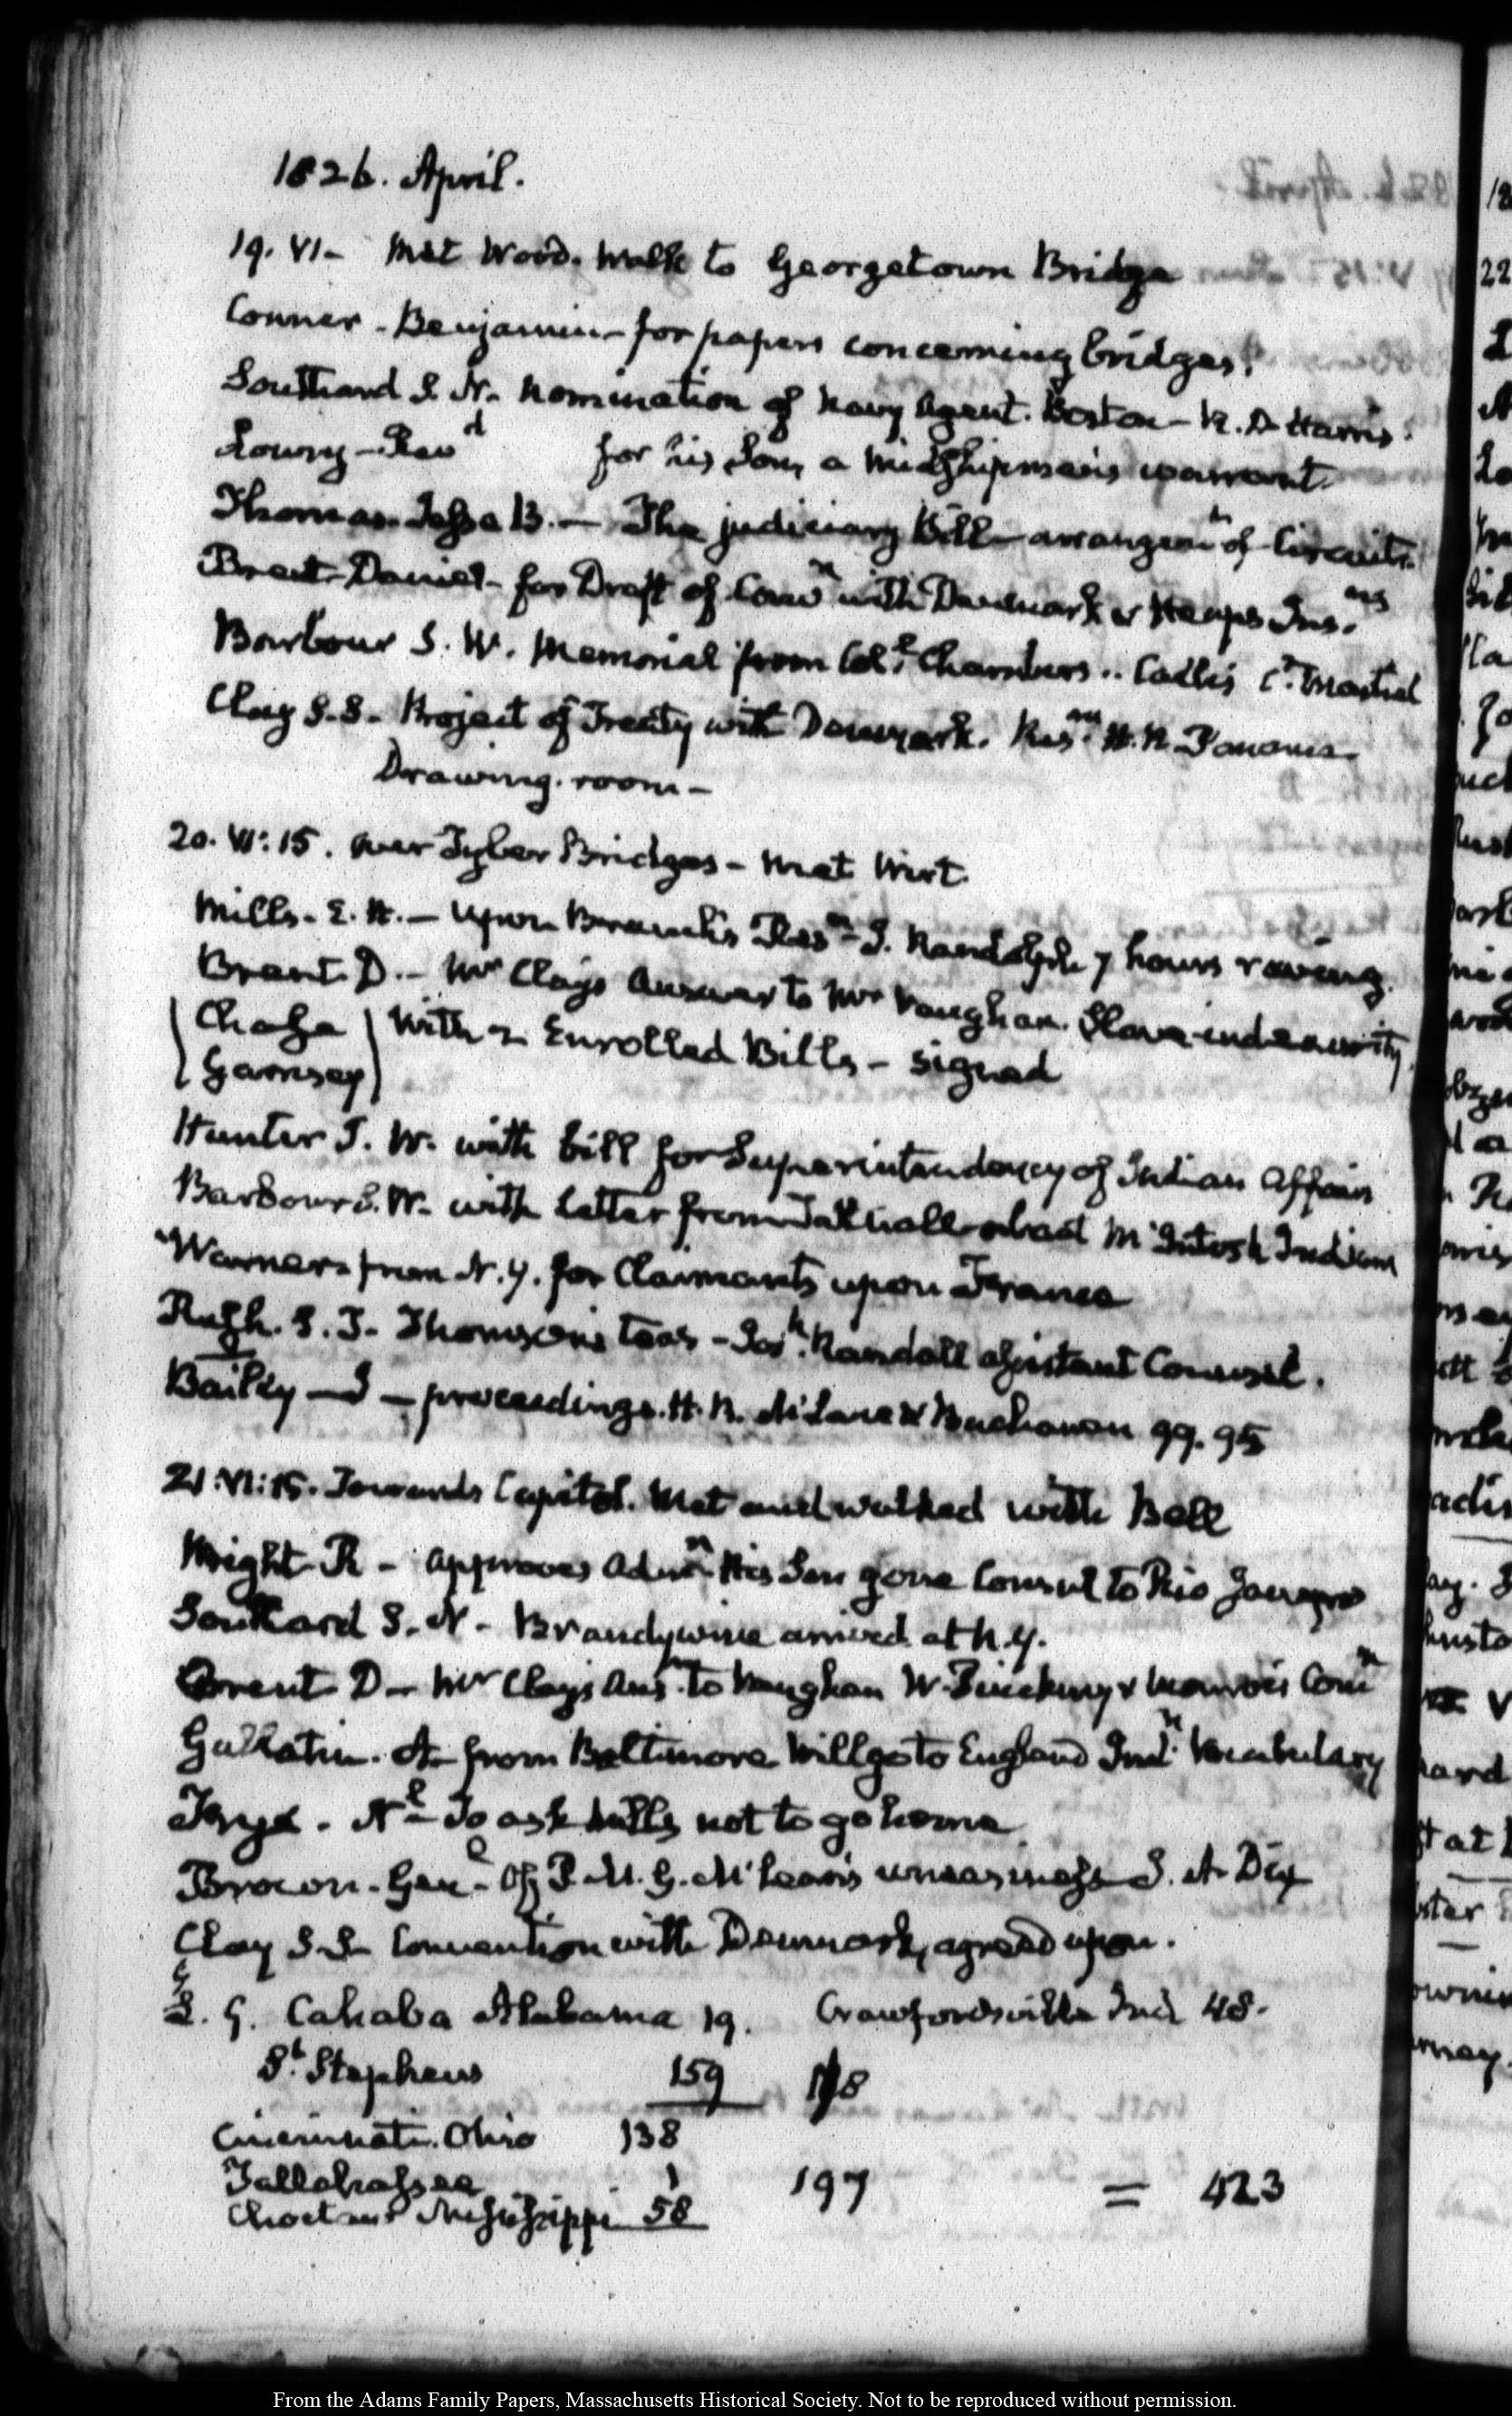 1826. April.
19. VI- Met Wood. Walk to Georgetown Bridge
Conner - Benjamin - for papers concerning bridges.
Southard S. N. nomination of Navy Agent. Boston - R. D Harris.
Lowry - Revd for his Son, a Midshipman's warrant.
Thomas. Jesse B. - The judiciary Bill - arrangemt of Circuits.
Brent. Daniel - for Draft of Convn with Denmark &
Barbour S. W. Memorial from Coll. Chambers .. Ct. Martial
Clay S. S. Project of Treaty with Denmark. Reson. H. R. Panama.
Drawing-room -
20. VI:15. over Tyber Bridges - met Wirt.
Mills. E. H. - upon Branch's Reson - J. Randolph 7 hours raving.
Brent. D. - Mr Clay's Answer to Mr Vaughan. Slave-indemnity.
Chase } with 2 Enrolled Bills - signed
Garnsey
Hunter J. W. with bill for Superintendency of Indian Affairs
Barbour S. W. with Letter from Tatnall about McIntosh Indians
Warner - from N. Y. for Claimants upon France
Rush. S. T. Thomson's teas - Josh. Randall assistant Counsel.
Bailey - J - proceedings. H. R. McLane & Buchanan 99. 95
21. VI:15. Towards Capitol. Met and walked with Bell
Wright. R - approves Admn. His Son gone Consul to Rio Janeiro
Southard S. N - Brandywine arrived at N. Y.
Brent D - Mr Clay's Ansr. to Vaughan W. Pinckney & Monroe's Comn
Gallatin. A - from Baltimore Will go to England Indn. Vocabulary
Force. Nl - To ask Mills not to go home.
Brown. Genl - Of P. M. G. McLean's uneasiness J. A. Dix
Clay S. S. Convention with Denmark, agreed upon.
L. G. Cahaba Alabama 19. Crawfordsville Ind 48.
St. Stephens 159 178
Cincinnati. Ohio 138
Tallahassee 1 197 = 423
Choctaw Mississippi 58
From the Adams Family Papers, Massachusetts Historical Society. Not to be reproduced without permission.